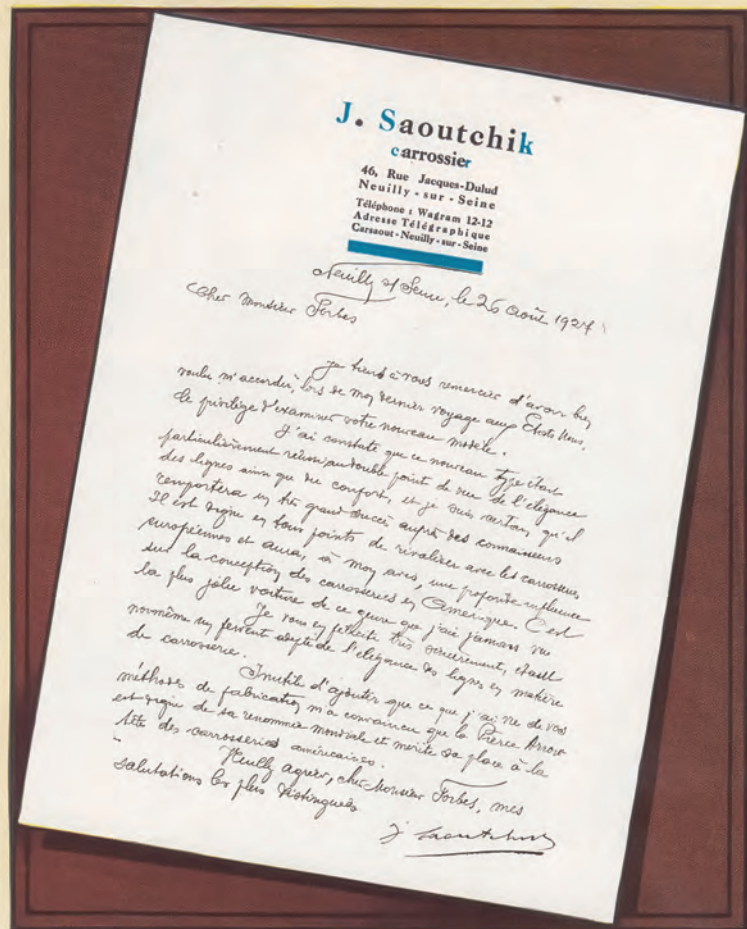 J. Saoutchik
carrossier
46, Rue Jacques-Dulud
Neuilly - sur - Seine
Téléphone : Wagram 12-12
Adresse Télégraphique
Carsaout - Neuilly - sur - Seine
Neuilly s/ Seine, le 26 Août 1927
Cher Monsieur Forbes
Je tiens à vous remercier d'avoir bien
voulu m'accorder, lors de mon dernier voyage aux États Unis,
le privilège d'examiner votre nouveau modèle.
J'ai constaté que ce nouveau type était
particulièrement réussi au double point de vue de l'élégance
des lignes ainsi que du confort, et je suis certain qu'il
remportera un très grand succès auprès des connaisseurs
Il est digne en tous points de rivaliser avec les carrosseries
européennes et aura, à mon avis, une profonde influence
sur la conception des carrosseries en Amérique. C'est
la plus jolie voiture de ce genre que j'aie jamais vue
Je vous en félicite très sincèrement, étant
moi-même un fervent adepte de l'élégance des lignes en matière
de carrosserie.
Inutile d'ajouter que ce que j'ai vu de vos
méthodes de fabrication m'a convaincu que la Pierce Arrow
est digne de sa renommée mondiale et mérite sa place à la
tête des carrosseries américaines.
Veuillez agréer, cher Monsieur Forbes, mes
salutations les plus distinguées
J. Saoutchik